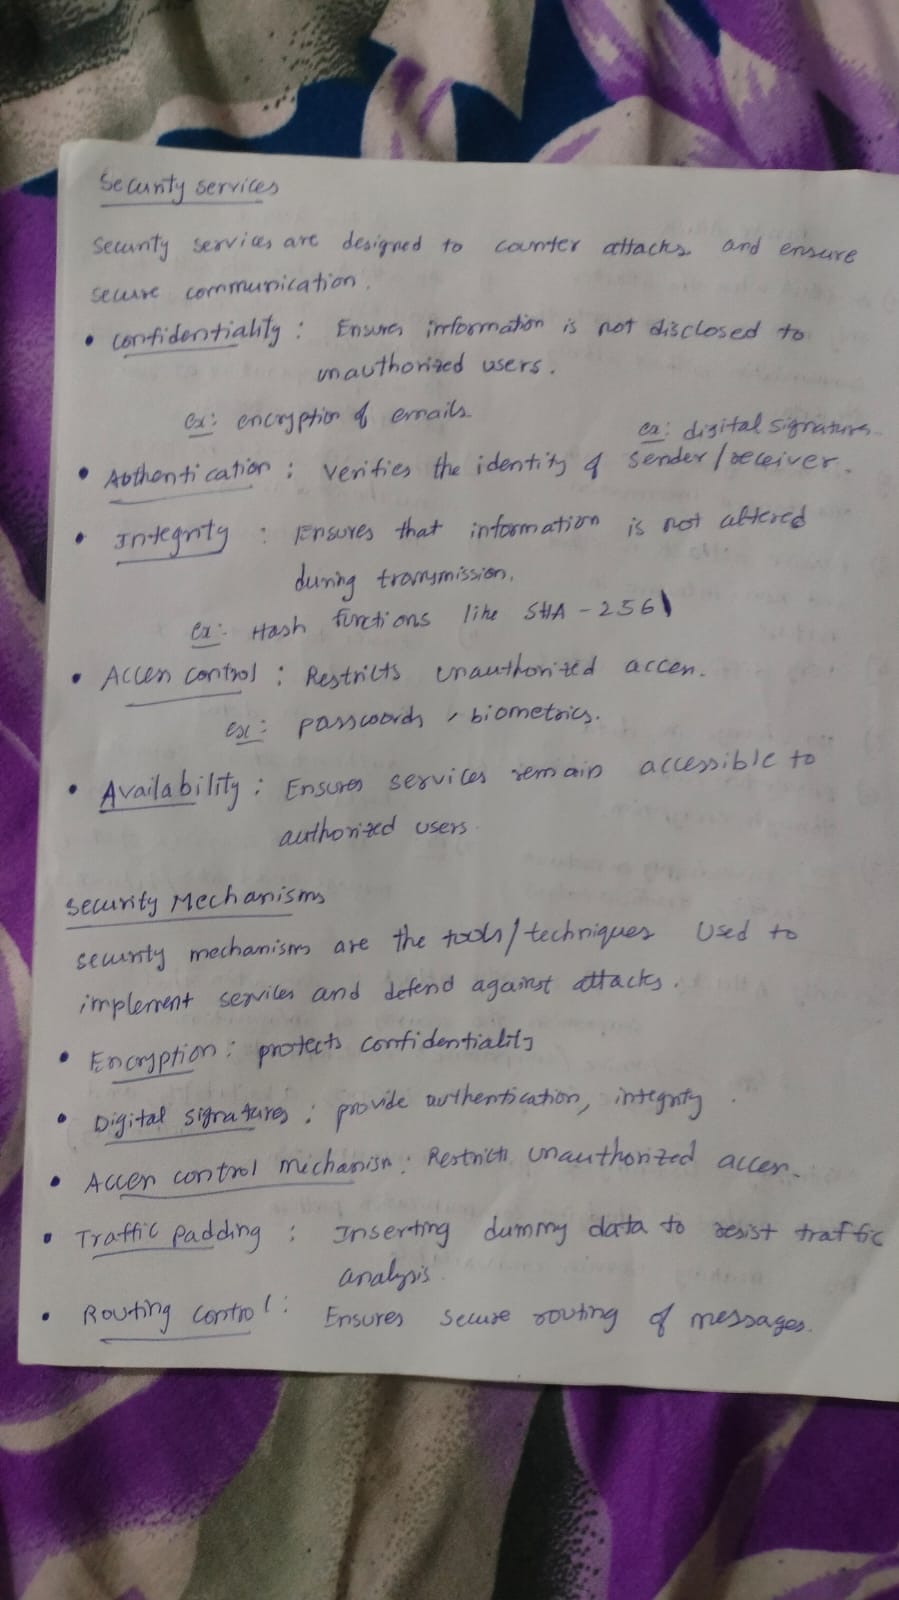 Security services
Security services are designed to counter attacks and ensure
secure communication.
• Confidentiality : Ensures information is not disclosed to
unauthorized users.
ex: encryption of emails
ex: digital signatures
• Authentication : Verifies the identity of sender/receiver.
• Integrity : Ensures that information is not altered
during transmission.
ex: Hash functions like SHA-256
• Access control : Restricts unauthorized access.
ex: passwords, biometrics.
• Availability : Ensures services remain accessible to
authorized users.
Security Mechanisms
security mechanisms are the tools/techniques used to
implement services and defend against attacks.
• Encryption : protects confidentiality
• Digital signatures : provide authentication, integrity.
• Access control mechanism : Restricts unauthorized access.
• Traffic padding : Inserting dummy data to resist traffic
analysis.
• Routing control : Ensures secure routing of messages.